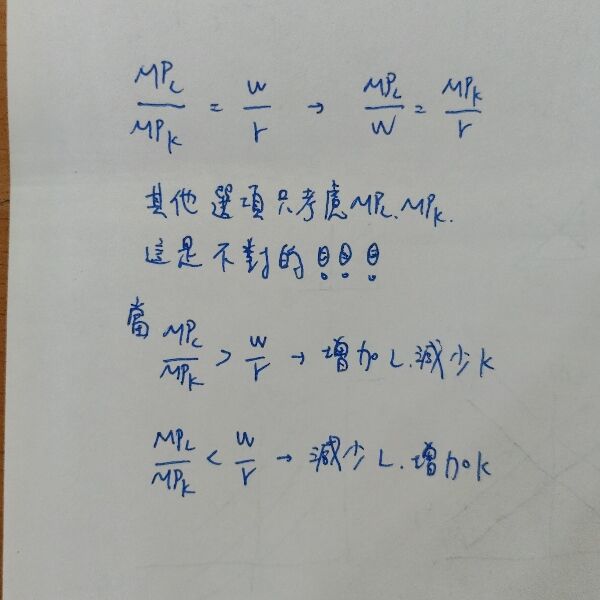 MP_L/MP_K = w/r → MP_L/W = MP_K/r
其他選項只考慮MP_L、MP_K.
這是不對的!!!
當 MP_L/MP_K > w/r → 增加L.減少K
MP_L/MP_K < w/r → 減少L.增加K